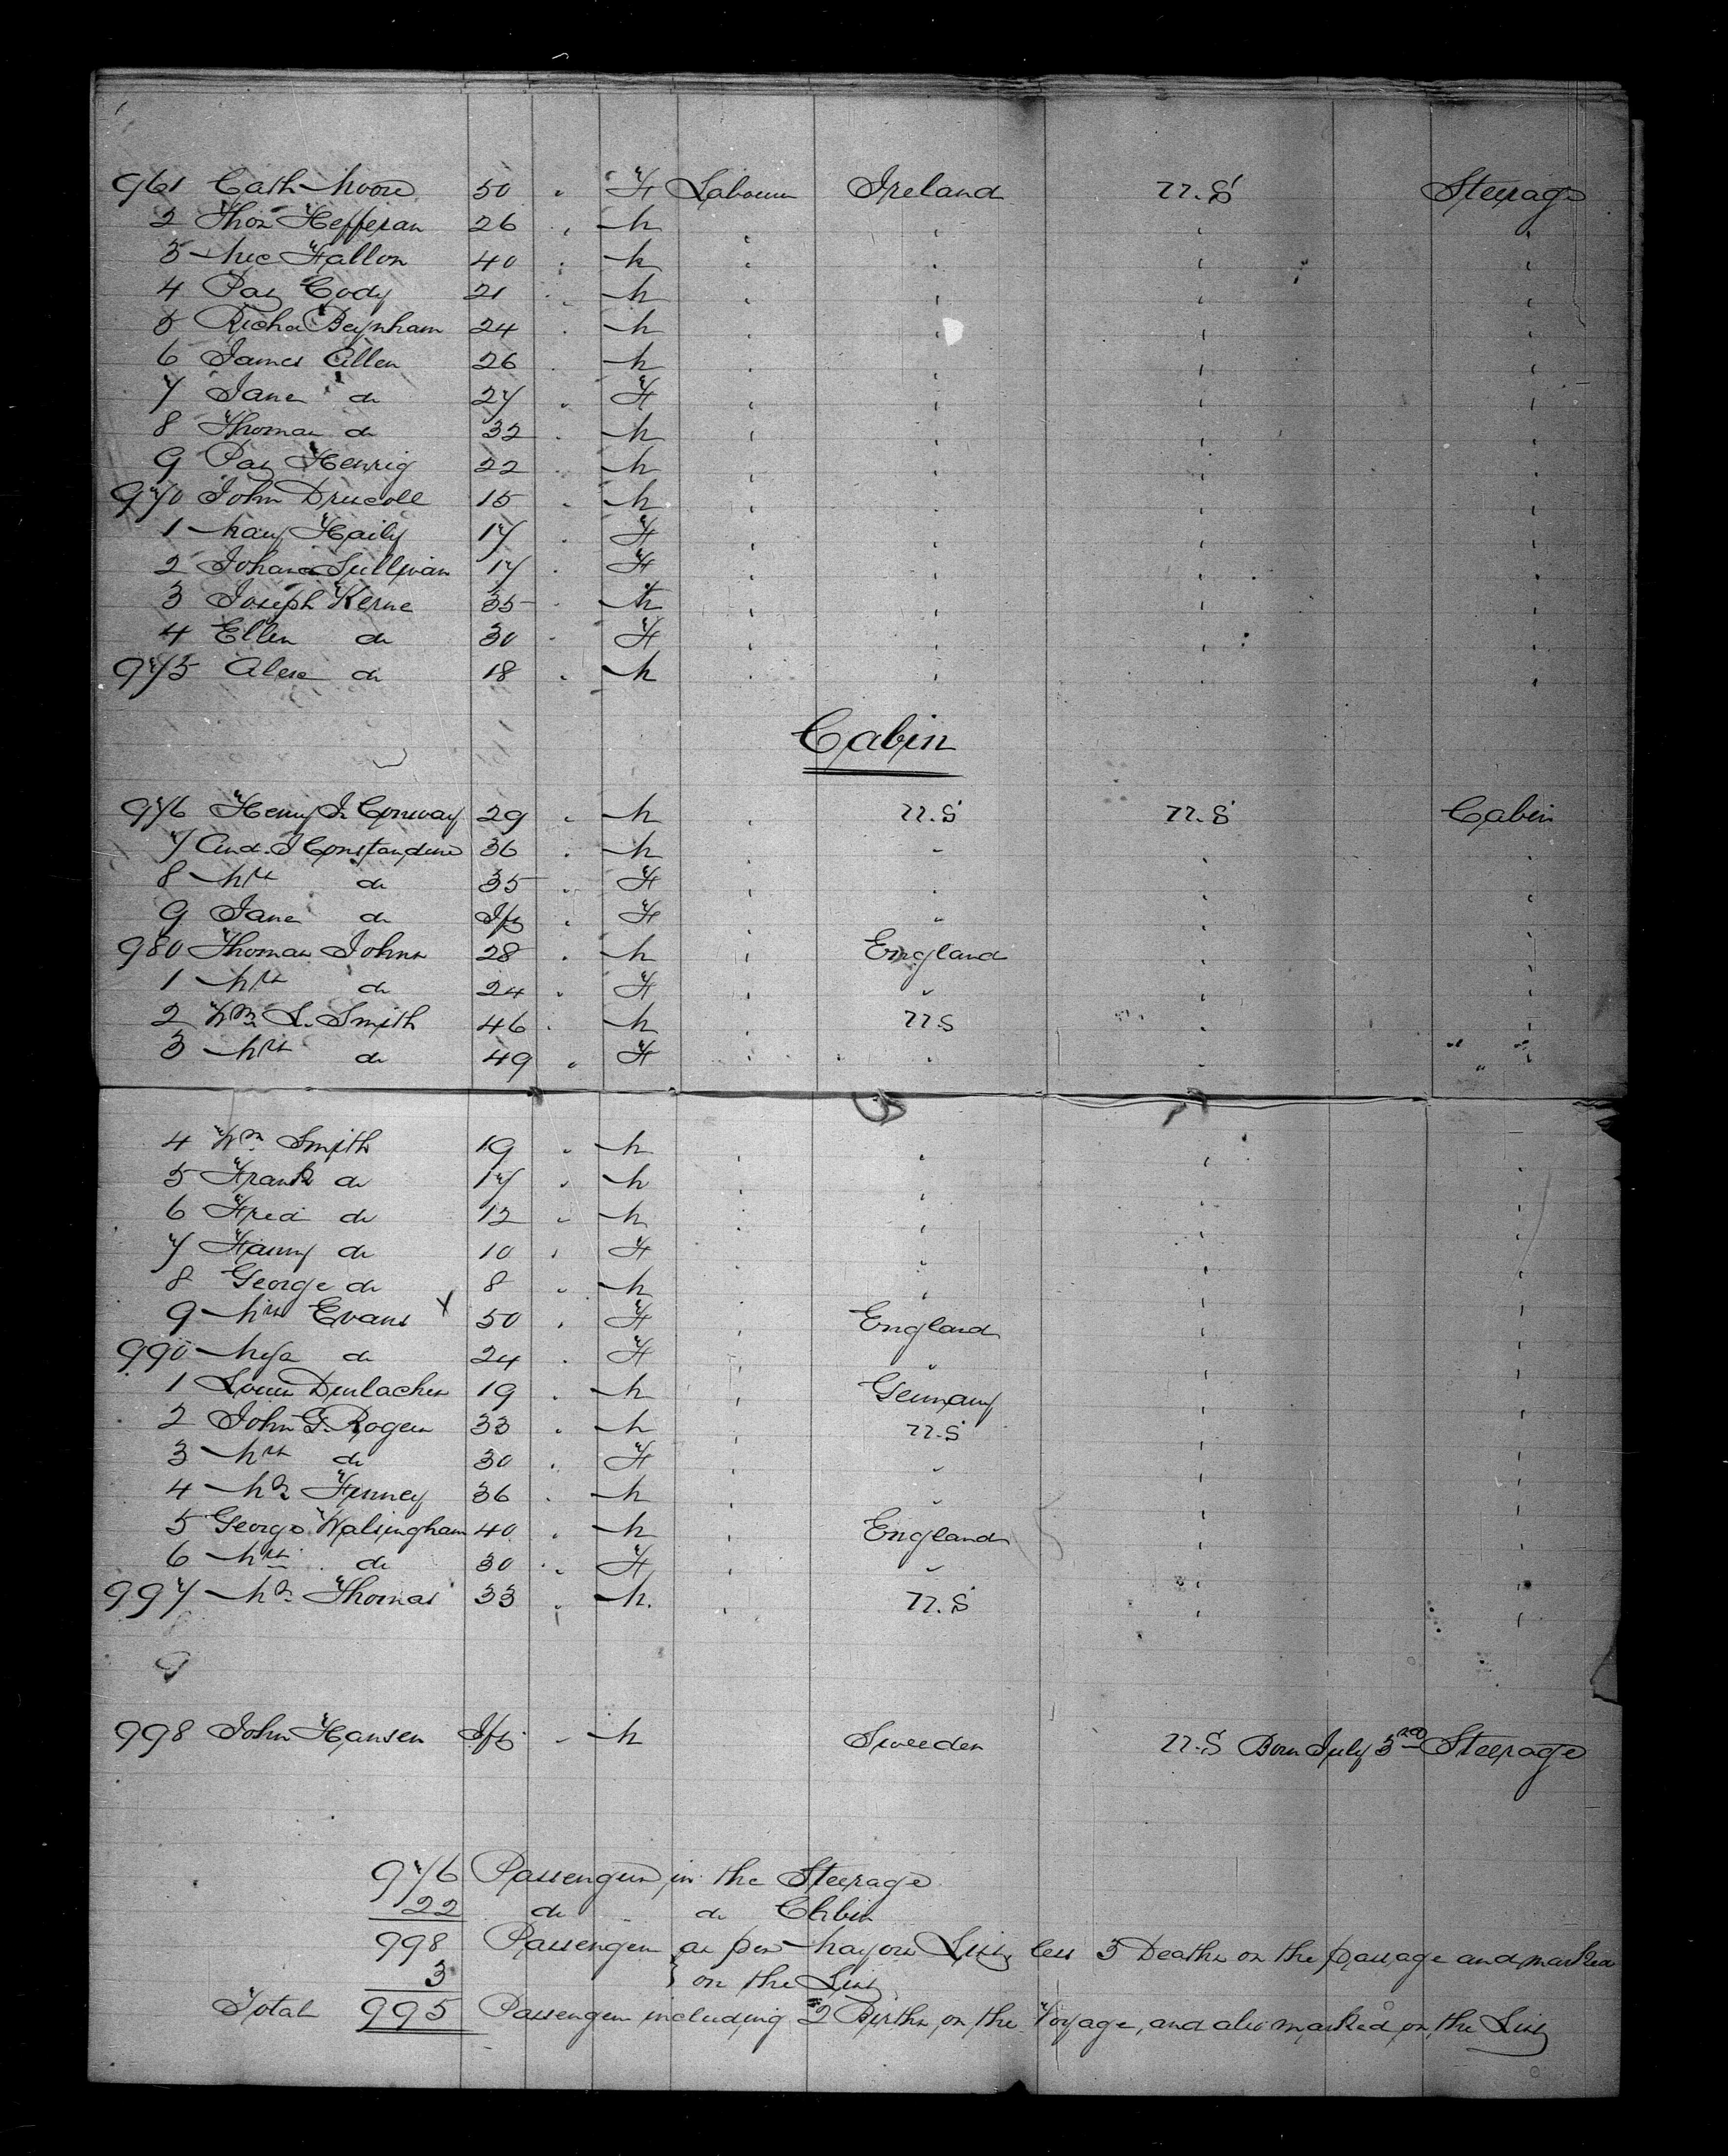 961 Cath Moore 50 " F Labourer Ireland U.S Steerage
2 Thos Hefferan 26 " M " " " "
3 Mic Fallon 40 " M " " " "
4 Pat Cody 21 " M " " " "
5 Richd Beynham 24 " M " " " "
6 James Allen 26 " M " " " "
7 Jane do 27 " F " " " "
8 Thomas do 32 " M " " " "
9 Pat Henrig 22 " M " " " "
970 John Driscoll 15 " M " " " "
1 Mary Haily 17 " F " " " "
2 Johana Sullivan 17 " F " " " "
3 Joseph Kerne 35 " M " " " "
4 Ellen do 30 " F " " " "
975 do 18 " M " " " "
Cabin
976 Henry Conway 29 " M " U.S U.S Cabin
7 And. J Constandine 36 " M " " " "
8 Mrs do 35 " F " " " "
9 Jane do Inft " F " " " "
980 Thomas Johns 28 " M " England " "
1 Mrs do 24 " F " " " "
2 Wm L. Smith 46 " M " U.S " "
3 Mrs do 49 " F " " " "
4 Wm Smith 19 " M " " " "
5 Frank do 17 " M " " " "
6 Fred do 12 " M " " " "
7 Fanny do 10 " F " " " "
8 George do 8 " M " " " "
9 Mrs Evans X 50 " F " England " "
990 Miss do 24 " F " " " "
1 Louis Durlacher 19 " M " Germany " "
2 John G. Rogers 33 " M " U.S " "
3 Mrs do 30 " F " " " "
4 Mr Finney 36 " M " " " "
5 George Walsingham 40 " M " England " "
6 Mrs do 30 " F " " " "
997 Mr Thomas 33 " M. " U.S " "
9
998 John Hansen Inft " M Sweeden U.S Born July 3rd Steerage
976 Passengers in the Steerage
22 do " do Cabin
998 Passengers as per Mayors List less 3 Deaths on the passage and marked
3 } on the List
Total 995 Passengers including 2 Births on the Voyage, and also marked on the List